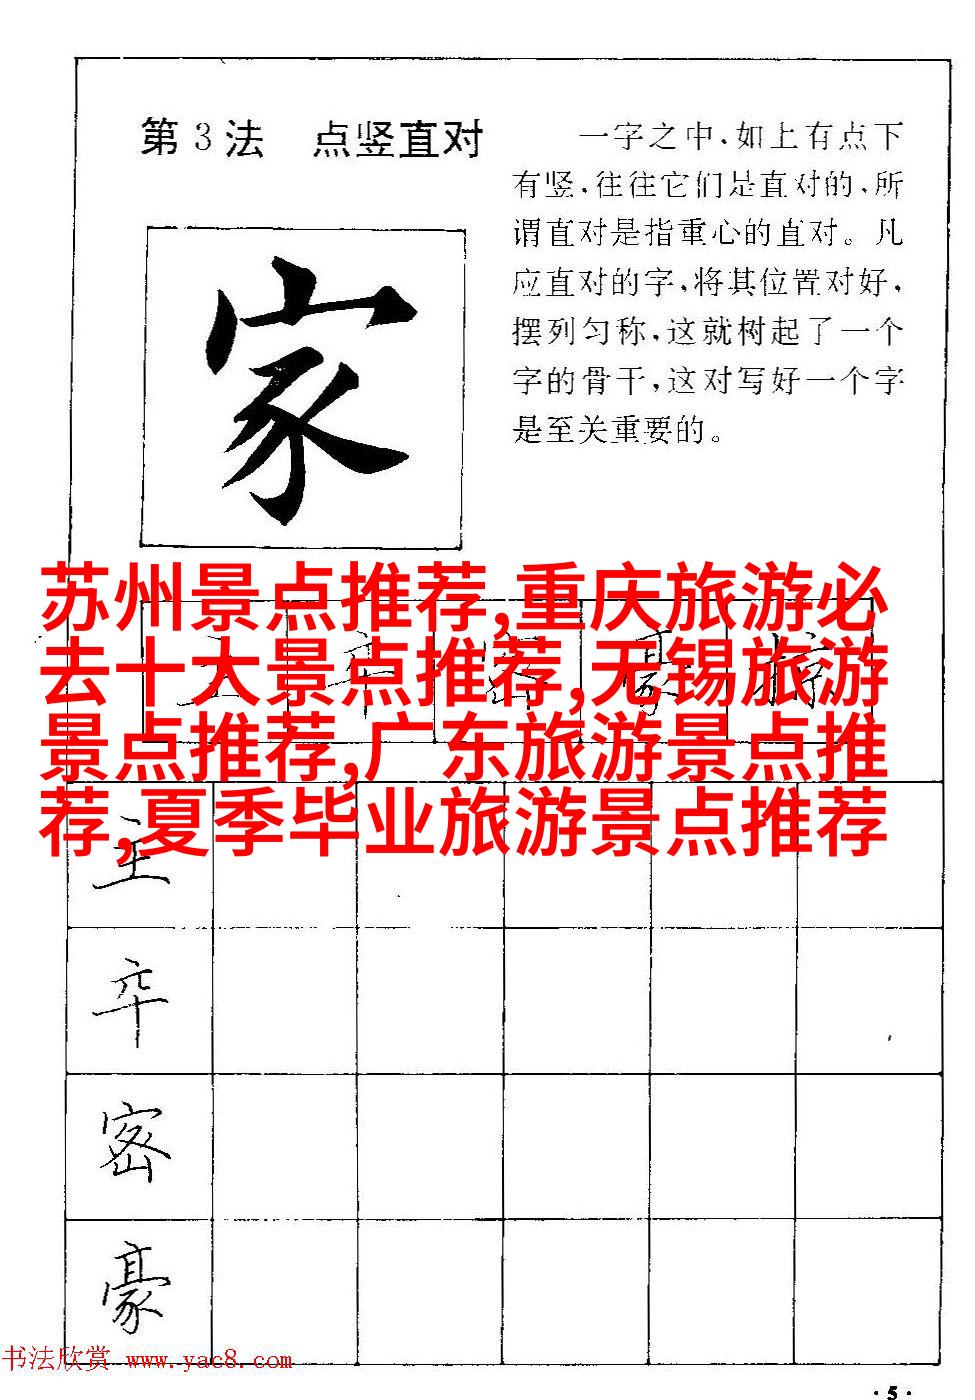 第3法 点竖直对
一字之中,如上有点下
有竖,往往它们是直对的、所
谓直对是指重心的直对。凡
应直对的字,将其位置对好,
摆列匀称,这就树起了一个
字的骨干,这对写好一个字
是至关重要的。
家
苏州景点推荐,重庆旅游必
去十大景点推荐,无锡旅游
景点推荐,广东旅游景点推
荐,夏季毕业旅游景点推荐
主
卒
密
豪
书法欣赏 www.yac8.com
·5·